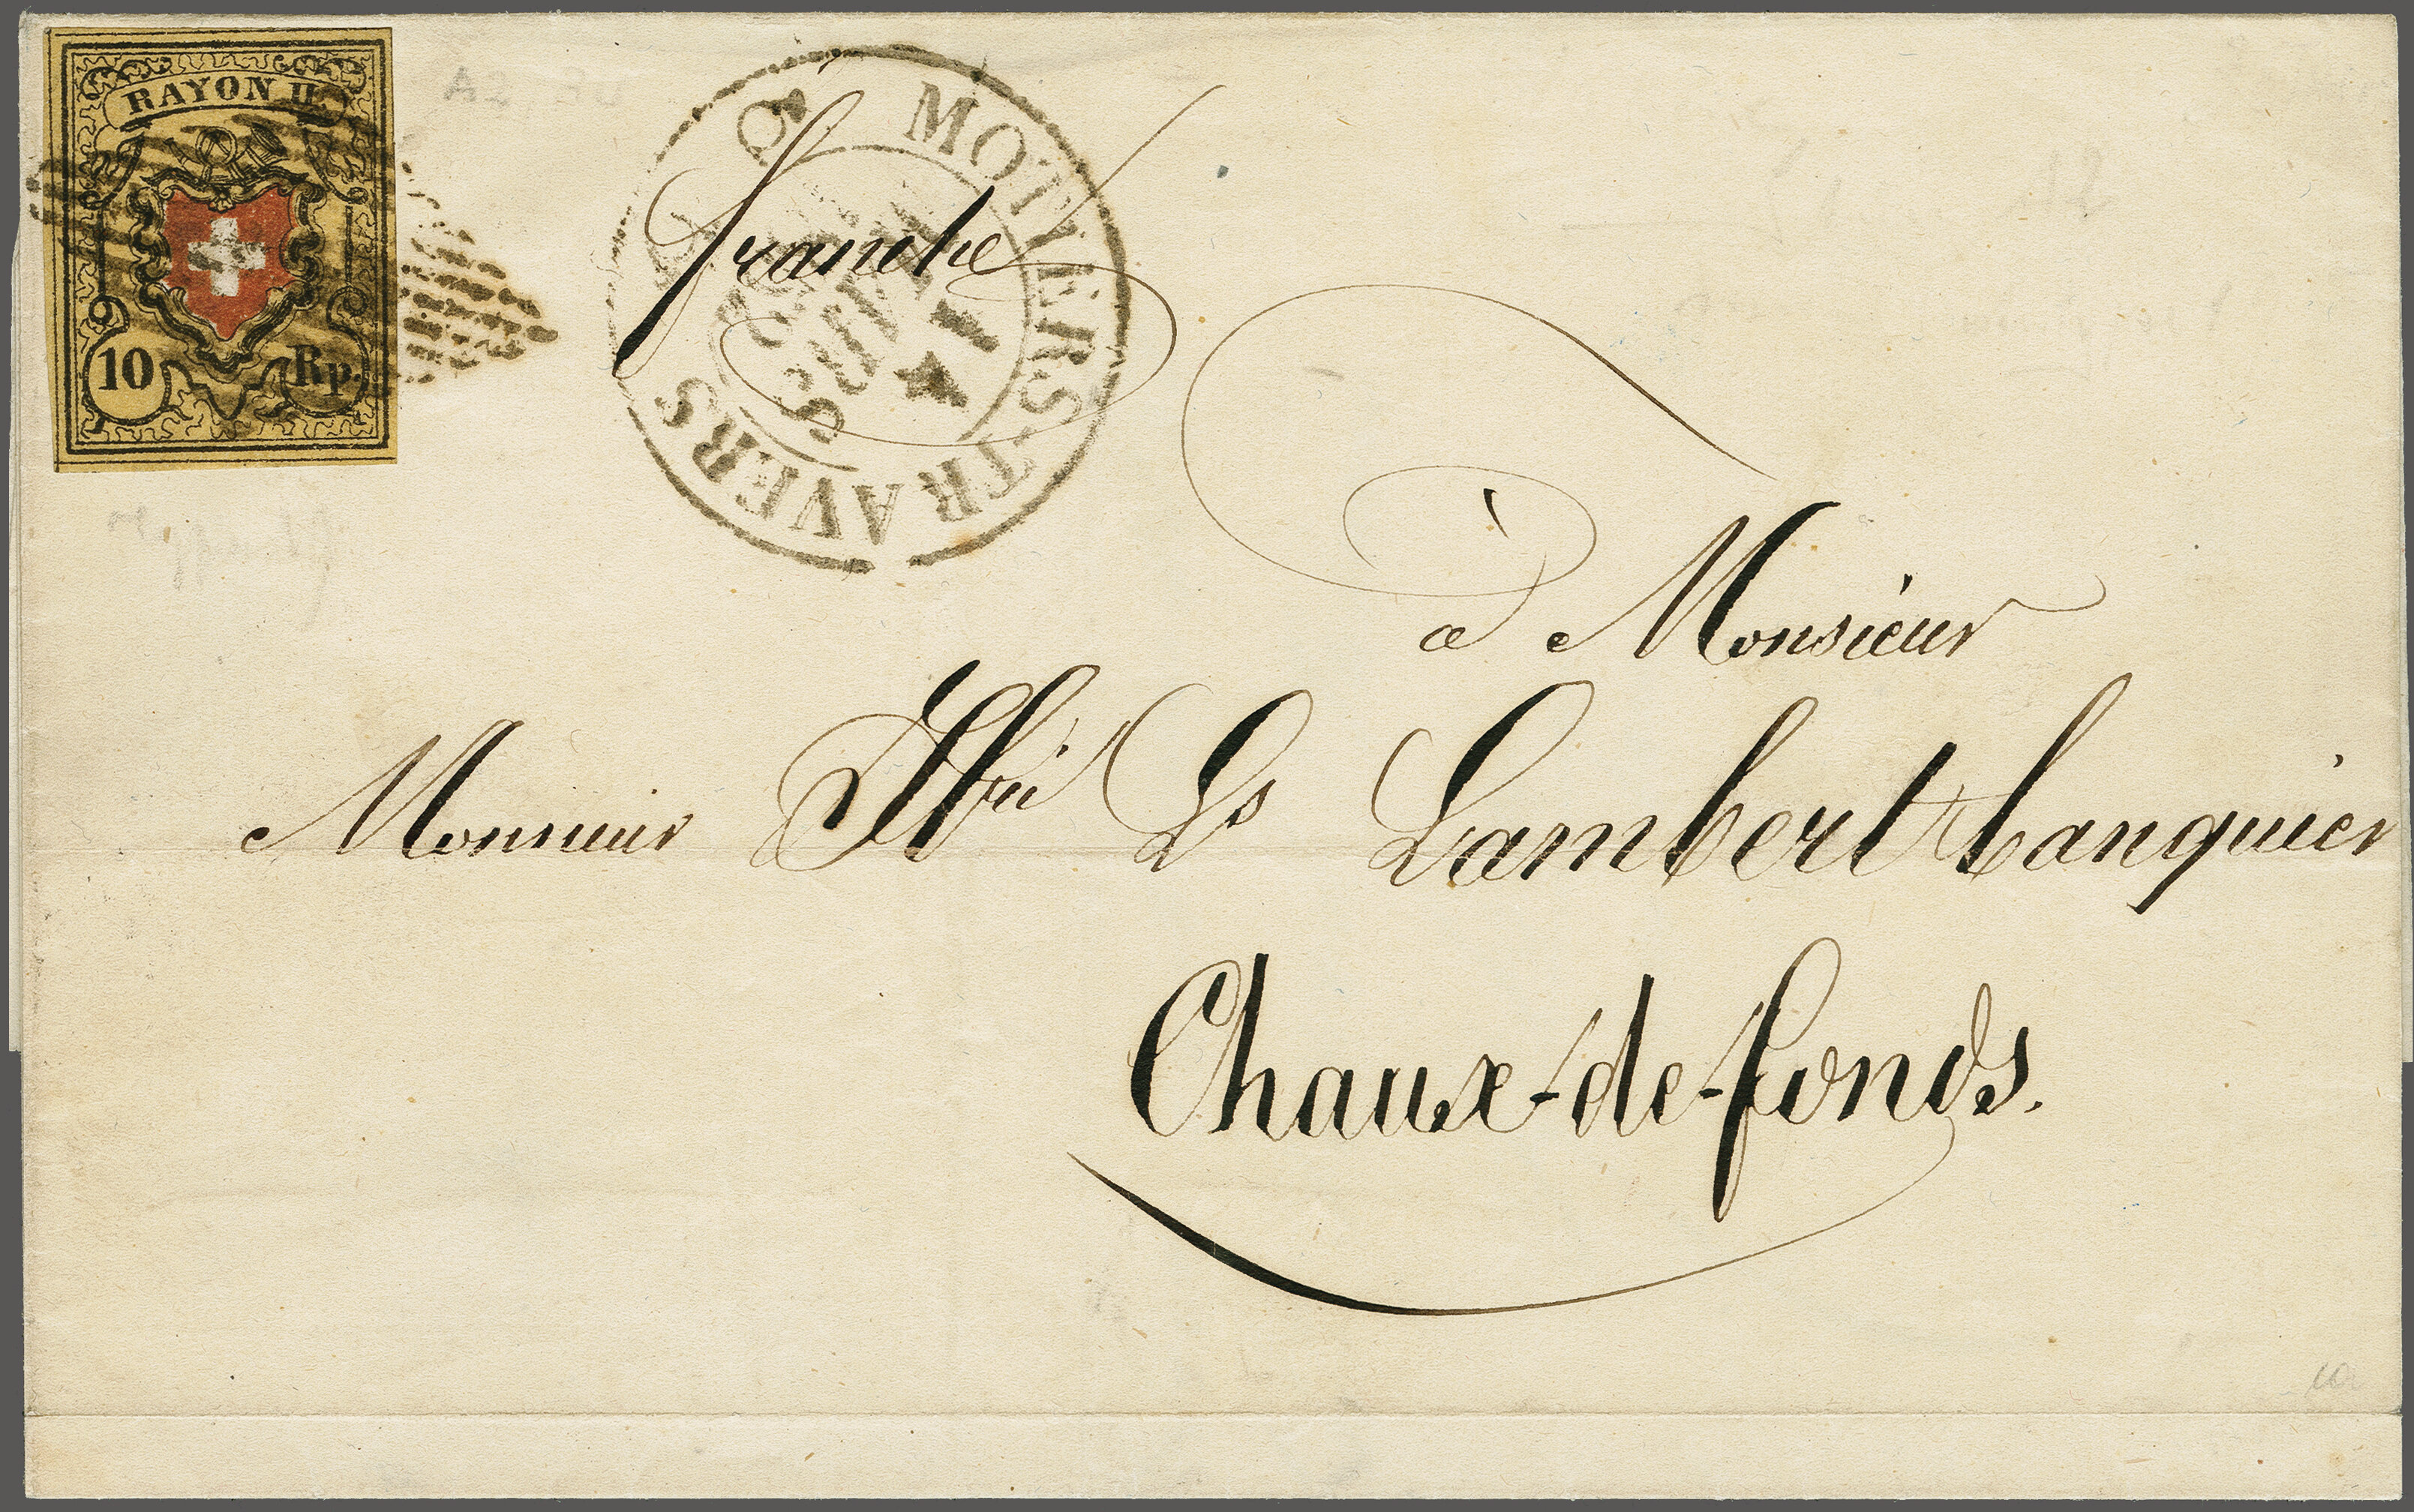 RAYON II
10 Rp.
MOTIERS-TRAVERS
franche
à Monsieur
Monsieur Hri Ls Lambert banquier
Chaux-de-fonds.